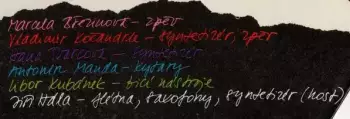 Marcela Březinová - zpěv
Vladimír Kočandrle - syntetizér, zpěv
Jana - syntetizér
Antonín Manda - kytary
Libor Kubánek - bicí nástroje
Jiří Hála - flétna, saxofony, syntetizér (host)